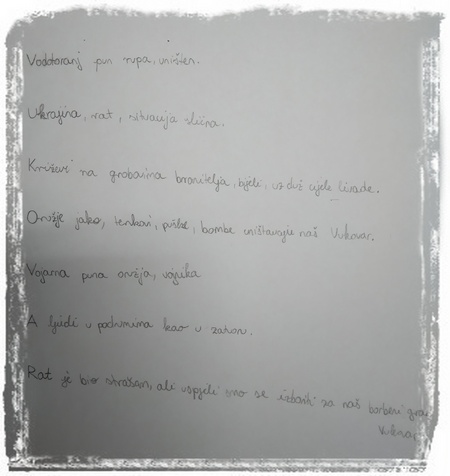 Vodotoranj pun rupa, uništen.
Ukrajina, rat, situacija slična.
Križevi na grobovima branitelja, bijeli, uzduž cijele livade.
Oružje jako, tenkovi, puške, bombe uništavaju naš Vukovar.
Vojarna puna oružja, vojnika
A ljudi u podrumima kao u zatvoru.
Rat je bio strašan, ali uspjeli smo se izboriti za naš